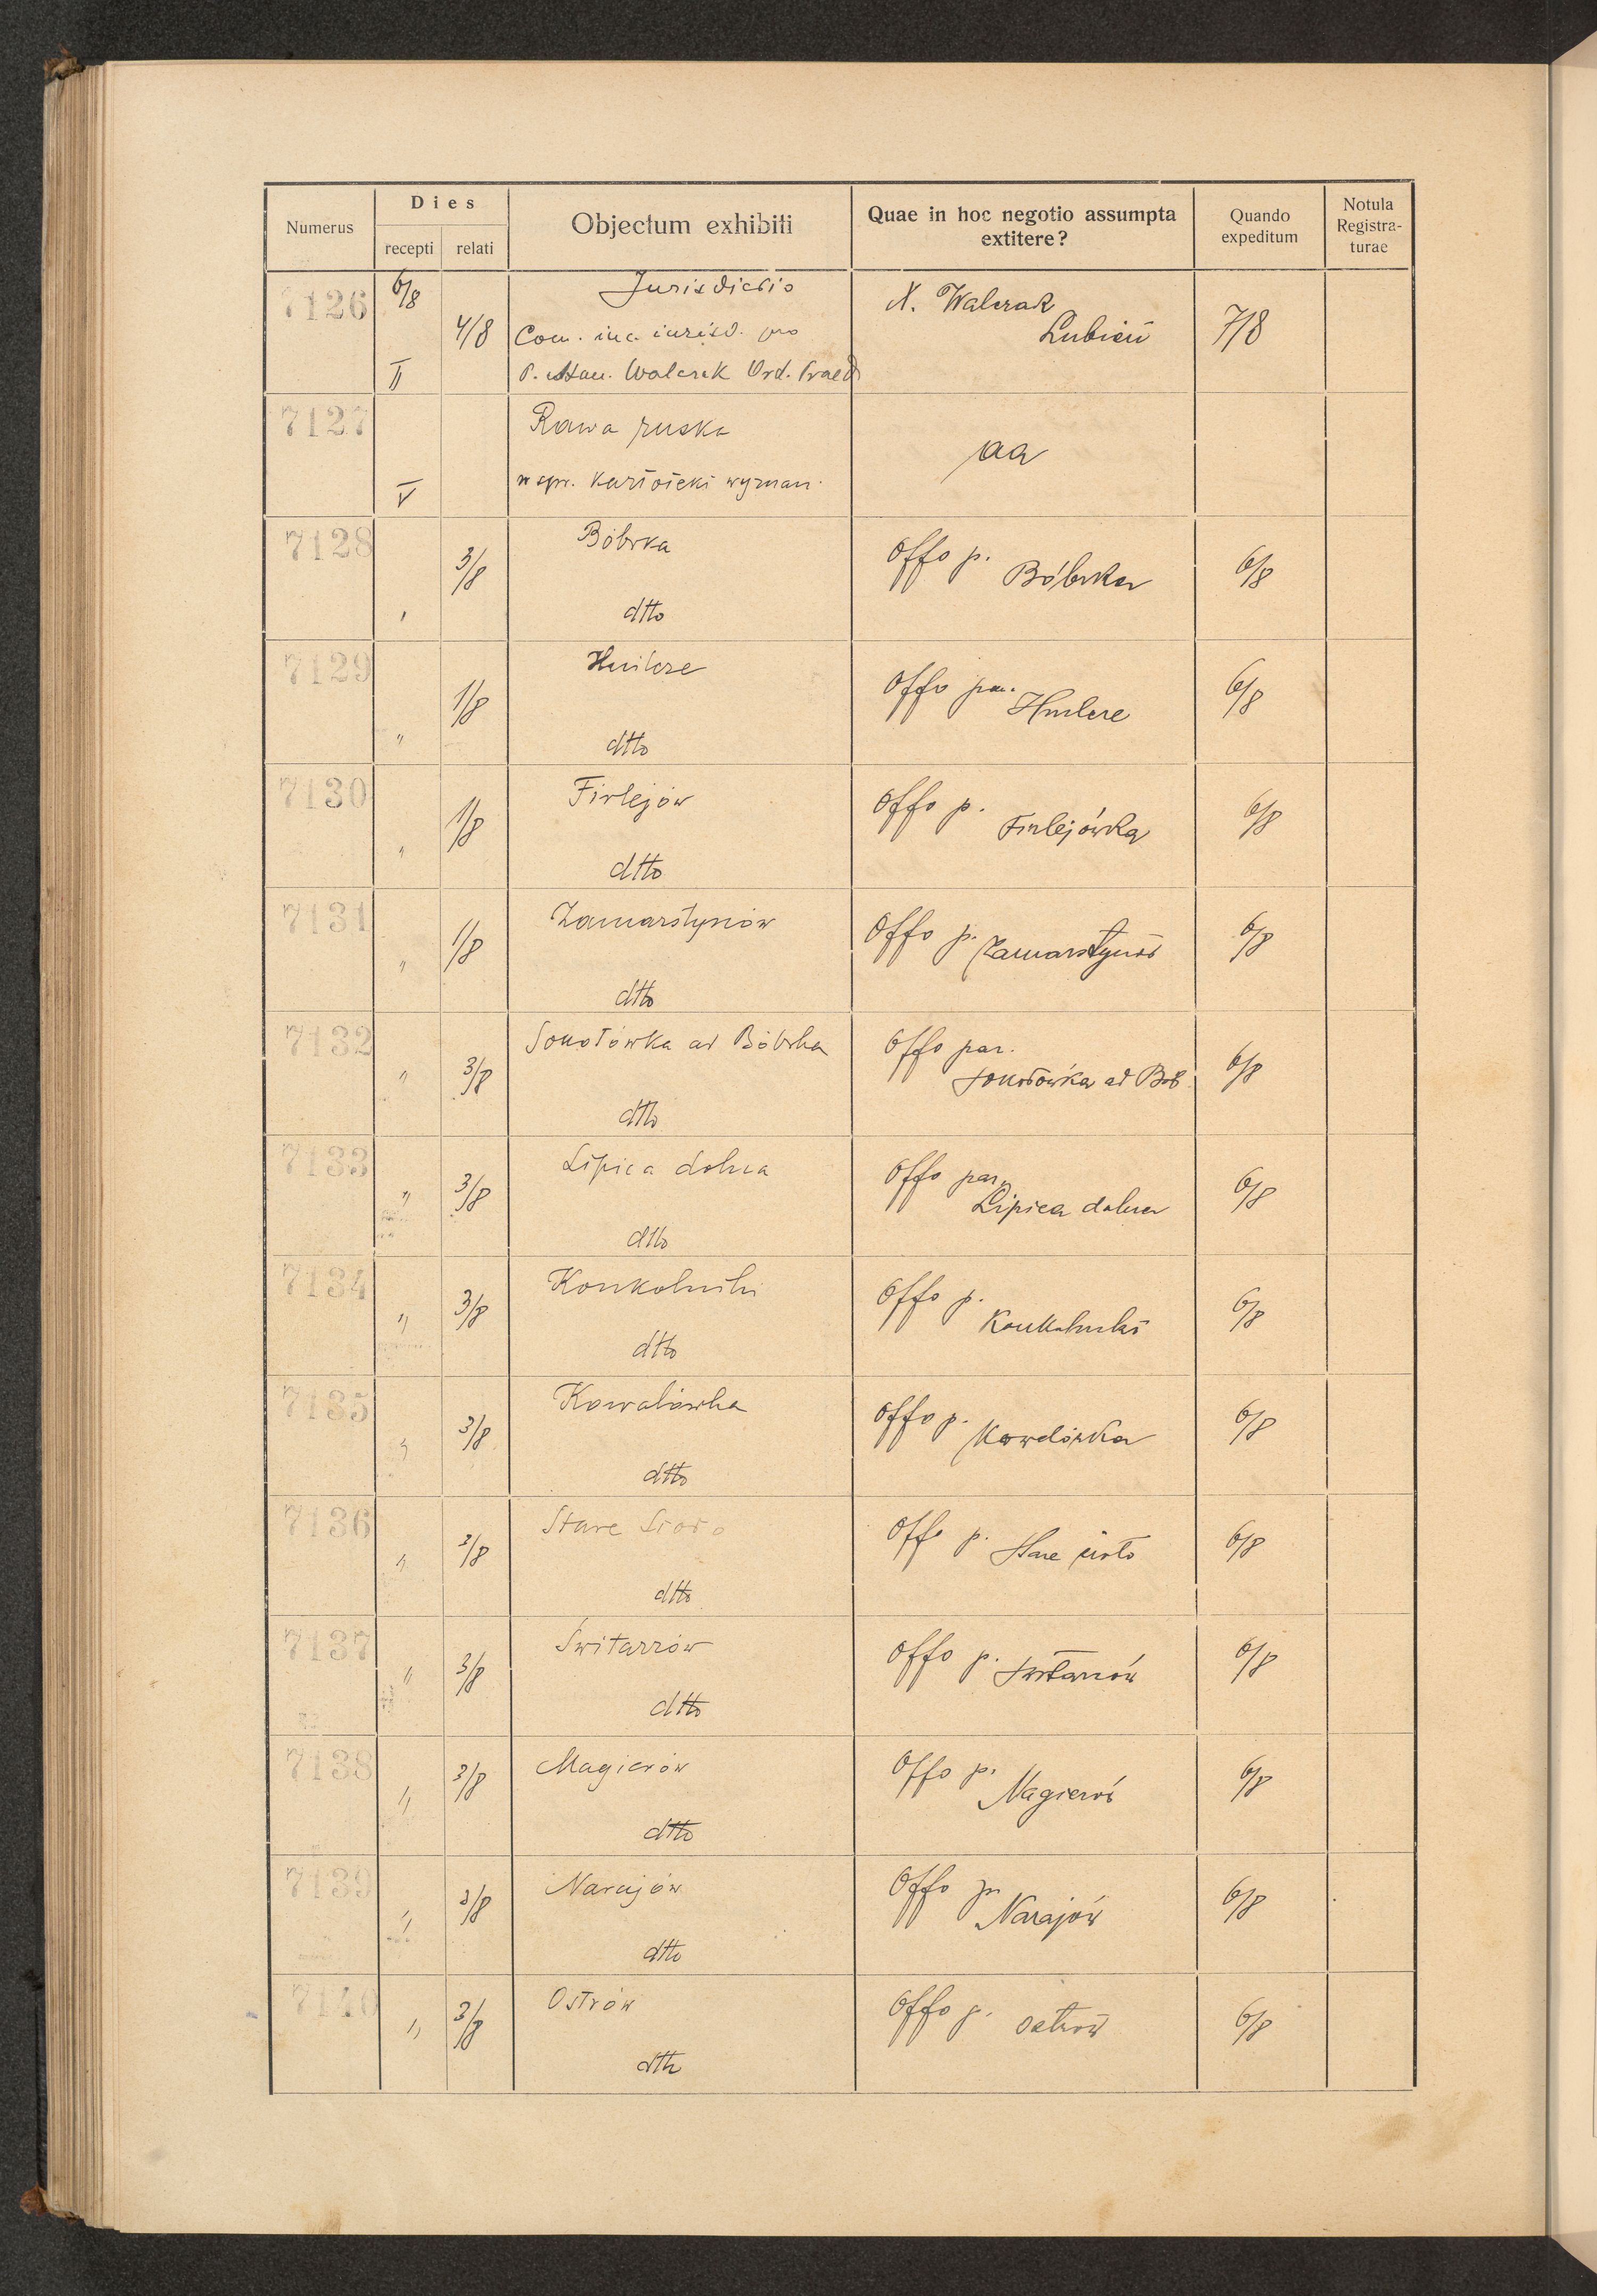 Numerus
Dies
recepti
relati
Objectum exhibiti
Quae in hoc negotio assumpta
extitere?
Quando
expeditum
Notula
Registra-
turae
7126 6/8 Jurisdictio X. Walczak
4/8 Lubień 7/8
II P. Walczak Ord. Praed
7127 Rawa ruska
aa
V w spr. kartoteki wyznan.
7128 3/8 Bóbrka Offo p. Bóbrka 6/8
dtto
7129 1/8 Hnilcze Offo par. Hnilcze 6/8
" dtto
7130 1/8 Firlejów Offo p. Firlejówka 6/8
" dtto
7131 1/8 Zamarstynów Offo p. Zamarstynów 6/8
" dtto
7132 3/8 Sokołówka ad Bóbrka Offo par. Sokołówka ad Bób. 6/8
" dtto
7133 3/8 Lipica dolna Offo par. Lipica dolna 6/8
" dtto
7134 3/8 Konkolniki Offo p. Konkolniki 6/8
" dtto
7135 3/8 Kowalówka Offo p. Kowalówka 6/8
" dtto
7136 3/8 Stare Sioło Offo p. Stare sioło 6/8
" dtto
7137 3/8 Świtarzów Offo p. Świtarzów 6/8
" dtto
7138 3/8 Magierów Offo p. Magierów 6/8
" dtto
7139 3/8 Narajów Offo p. Narajów 6/8
" dtto
7140 3/8 Ostrów Offo p. Ostrów 6/8
" dtto